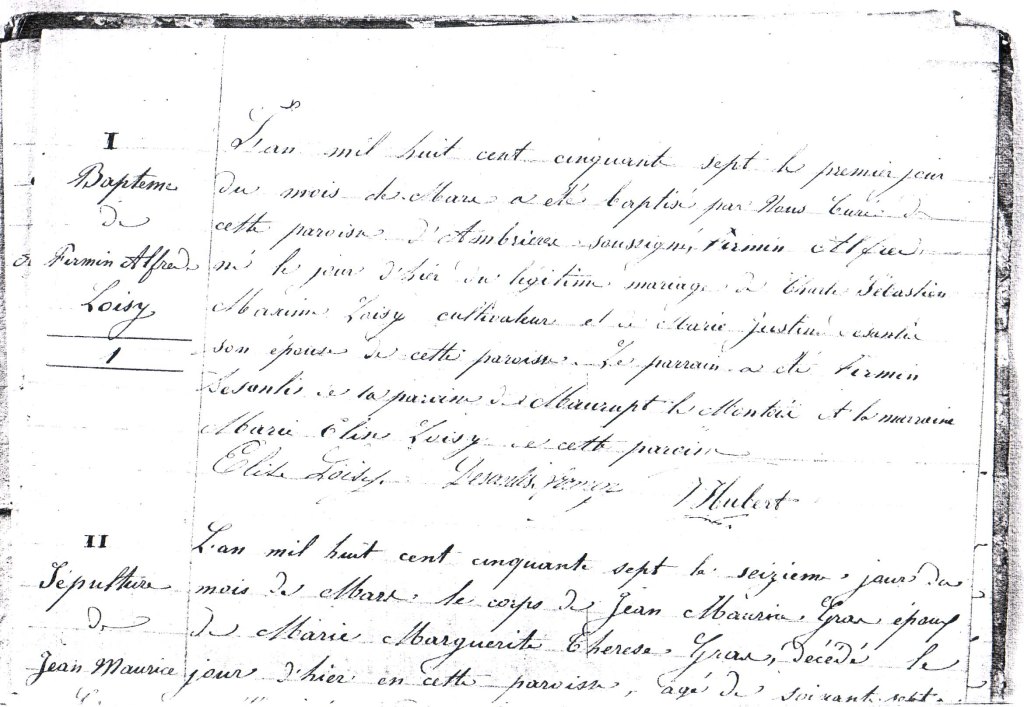 I
Bapteme
de
Firmin Alfred
Loisy
1
L'an mil huit cent cinquante sept le premier jour
du mois de Mars a été baptisé par Nous Curé de
cette paroisse d'Ambrières soussigné, Firmin Alfred,
né le jour d'hier du légitime mariage de Charle Sébastien
Maxime Loisy cultivateur et de Marie Justine Desanlis
son épouse de cette paroisse. Le parrain a été Firmin
Desanlis de la paroisse de Maurupt le Montoié et la marraine
Marie Elise Loisy de cette paroisse
Elise Loisy. Desanlis Hubert
II
Sépulture
de
Jean Maurice
L'an mil huit cent cinquante sept le seizième jour du
mois de Mars le corps de Jean Maurice Gras époux
de Marie Marguerite Therese Gras, décédé le
jour d'hier en cette paroisse, agé de soixante sept